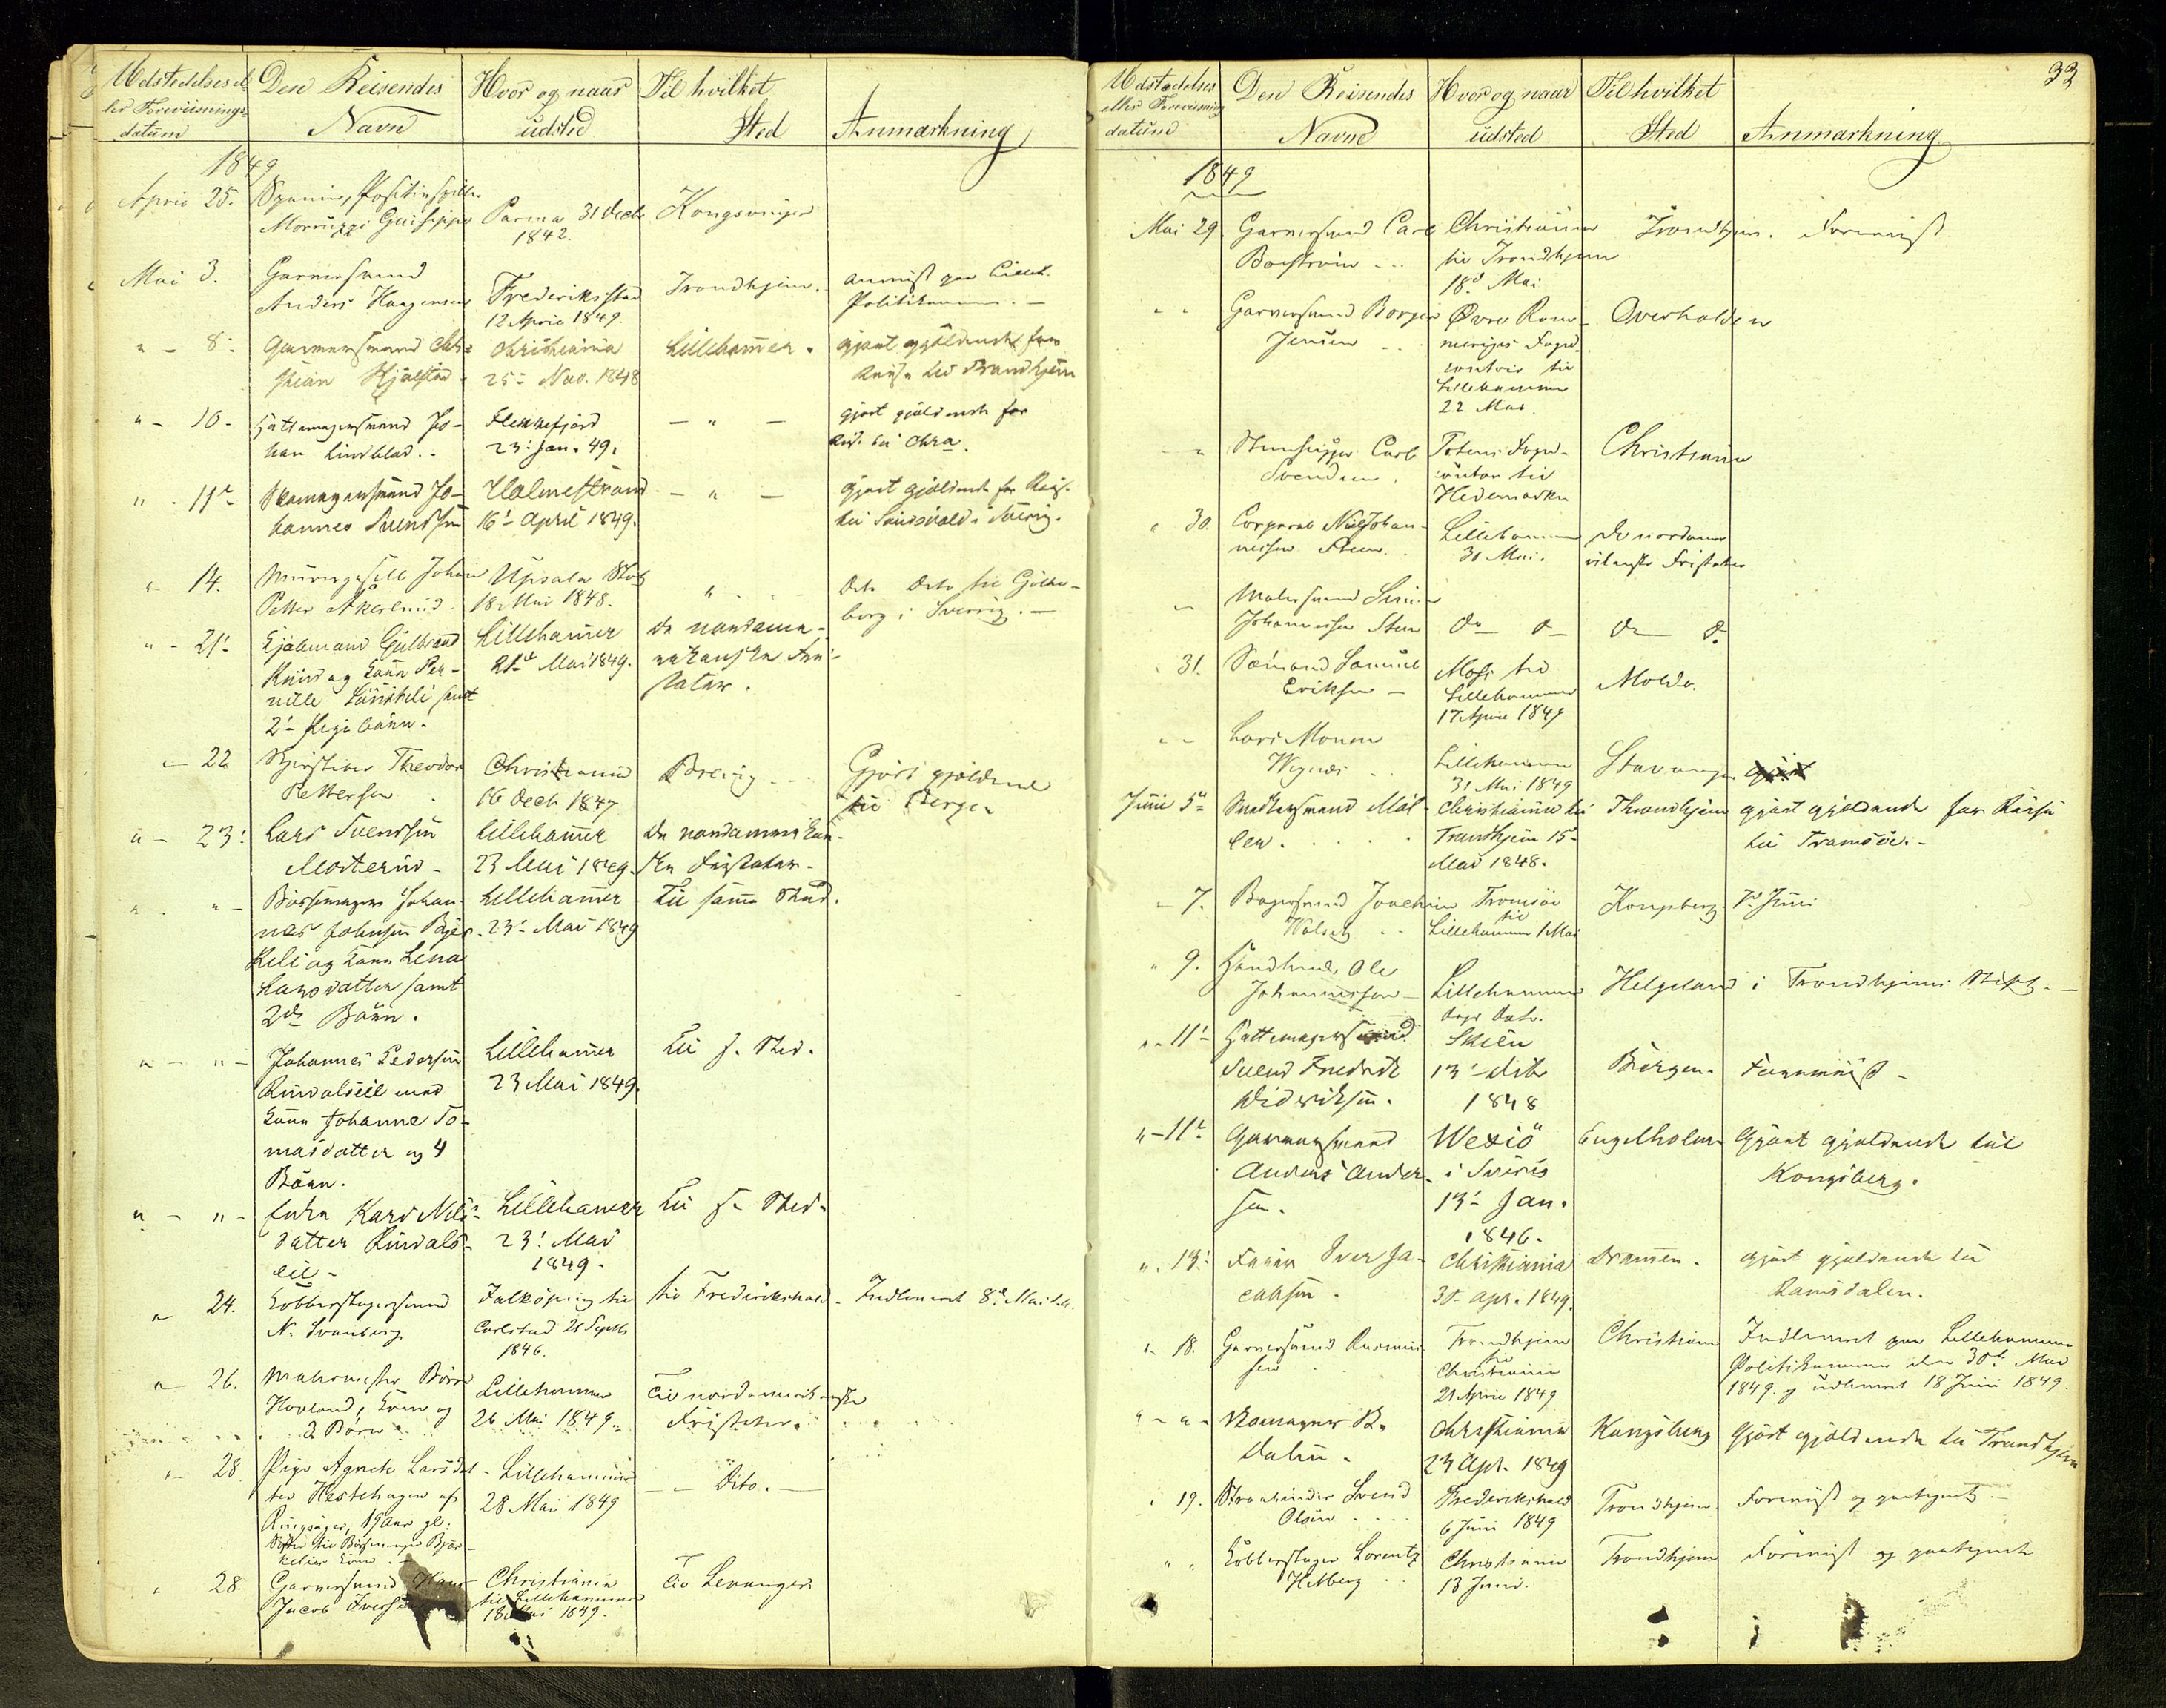 Udstedelses el
ler Foreviisnings
datum
Den Reisendes
Navn
Hvor og naar
udsted
Til hvilket
Sted
Anmærkning
1849
April 25.
Morruzzi Guiseppe
Parma 31 Decb
1842.
Kongsvinger
Mai 3.
Garversvend
Anders Haagensen
Frederikstad
12 April 1849.
Trondhjem.
anviist paa Lilleh.
Politikammer. —
" - 8.
Garversvend Chri-
stian Hjalstad
Christiania
25 Nov. 1848
Lillehammer.
gjort gjældende for
Reise til Trondhjem
" - 10 -
Hattemagersvend Jo-
han Lindblad. -
Flekkefjord
23 Jan. 49.
— " —
gjort gjældende for
Reise til Chra.
" - 11
Skomagersvend Jo-
hannes Svendsen
Holmestrand
16 April 1849.
— " —
gjort gjældende for Reise
til Sundsvald i Sverig.
" 14.
Petter Åkerlund.
Upsala Slot
18 Mai 1848.
"
dito dito til Gøthe-
borg i Sverrig. —
" - 21
Gulbrand
Kone Per-
nille
2
Lillehammer
21 Mai 1849.
de nordame-
rikanske Fri-
stater.
" 22
Theodor
Pettersen
Christiania
16 Decb 1847
Gjort gjældende
til Bergen
" - 23
Lars Svendsen
Mosterud -
Lillehammer
23 Mai 1849.
de nordamerikan-
ske Fristater.
" "
Bøssemager Johan-
nes Johnsen Bjør-
keli og Kone Lena
Larsdatter samt
2de Børn.
Lillehammer
23 Mai 1849
til samme Sted.
" - " -
Johannes Pedersen
Rindalseie med
Kone Johanne To-
masdatter og 4
Børn.
Lillehammer
23 Mai 1849.
til s. Sted.
" - " -
Enke Kari Nils-
datter Rindals-
eie -
Lillehammer
23 Mai
1849.
til s. Sted.
" 24.
Kobberslagersvend
N. Svanberg
Falköping til
Carlstad 26 Septb
1846.
til Frederikshald.
Indleveret 8 Mai
" 26.
Hovland, Kone og
2 Børn
Lillehammer
26 Mai 1849.
til nordamerikanske
Fristater.
" 28
Pige Agnete Larsdat-
ter Hestehagen af
Ringsager, 19 Aar gl:
Søster til Bøssemager Bjør-
kelies Kone. -
Lillehammer
28 Mai 1849
— Dito. —
" 28.
Garversvend Hans
Jacob Iversen
Christiania
til Lillehammer
18 Mai 1849.
til Levanger
33
Udstedelses
eller Foreviisning
datum
Den Reisendes
Navn
Hvor og naar
udsted
Til hvilket
Sted
Anmærkning
1849
Mai 29.
Garversvend Carl
Boström
Christiania
til Trondhjem
18 Mai
Trondhjem.
Foreviist
" "
Garversvend Borger
Jensen
Øvre Rome-
neriges Fogd-
contoir til
Lillehammer
22 Mai.
Overhalden
" "
Steenhugger Carl
Svendsen.
Totens Fogd-
contor til
Hedemarken
Christiania
" 30.
Corporal Niels Johan-
nessen Steen.
Lillehammer
30 Mai.
de nordame-
rikanske Fristater
"
Malersvend
Johannessen Steen
do do
do do
" 31.
Sømand Samuel
Eriksen -
Moss til
Lillehammer
17 April 1849
Molde.
" "
Lars Monsen
Lillehammer
31 Mai 1849
Stavanger
Juni 5
Christiania til
Trondhjem 15
Mai 1848.
Throndhjem
gjort gjældende for Reise
til Tromsöe. -
" 7.
Bagersvend Joachim
Tromsøe
til
Lillehammer 1 Mai
Kongsberg
7 Juni
" 9.
Handelsm. Ole
Johannessen
Lillehammer
Dags Dato.
Helgeland i Trondhjems Stift. —
" - 11
Hattemagersvend
Svend Fredrik
Didriksen.
Skien
13 Octbr
1848
Bergen.
Foreviist -
" - 11
Garversvend
Anders Ander-
sen.
Wexiö
i Sverig
13 Jan.
1846.
Engelholm
Gjort gjældende til
Kongsberg.
" 13
Farver Iver Ja-
cobsen.
Christiania
30 apr. 1849.
Drammen.
gjort gjældende til
Ramsdalen.
" 18.
Garversvend Rasmus-
sen
Trondhjem
til
Christiania
21 April 1849
Christiania
Indleveret paa Lillehammer
Politikammer den 30 Mai
1849 og udleveret 18 Juni 1849.
" - " -
Skomager B.
Dalin.
Christiania
23 Apr. 1849
Kongsberg
Gjort gjældende til Trondhjem
" 19.
Svend
Olsen
Frederikshald
6 Juni 1849
Trondhjem
Foreviist og paategnet. -
" "
Kobberslager Lorentz
Hetberg
Christiania
13 Juni.
Trondhjem
Foreviist og paategnet